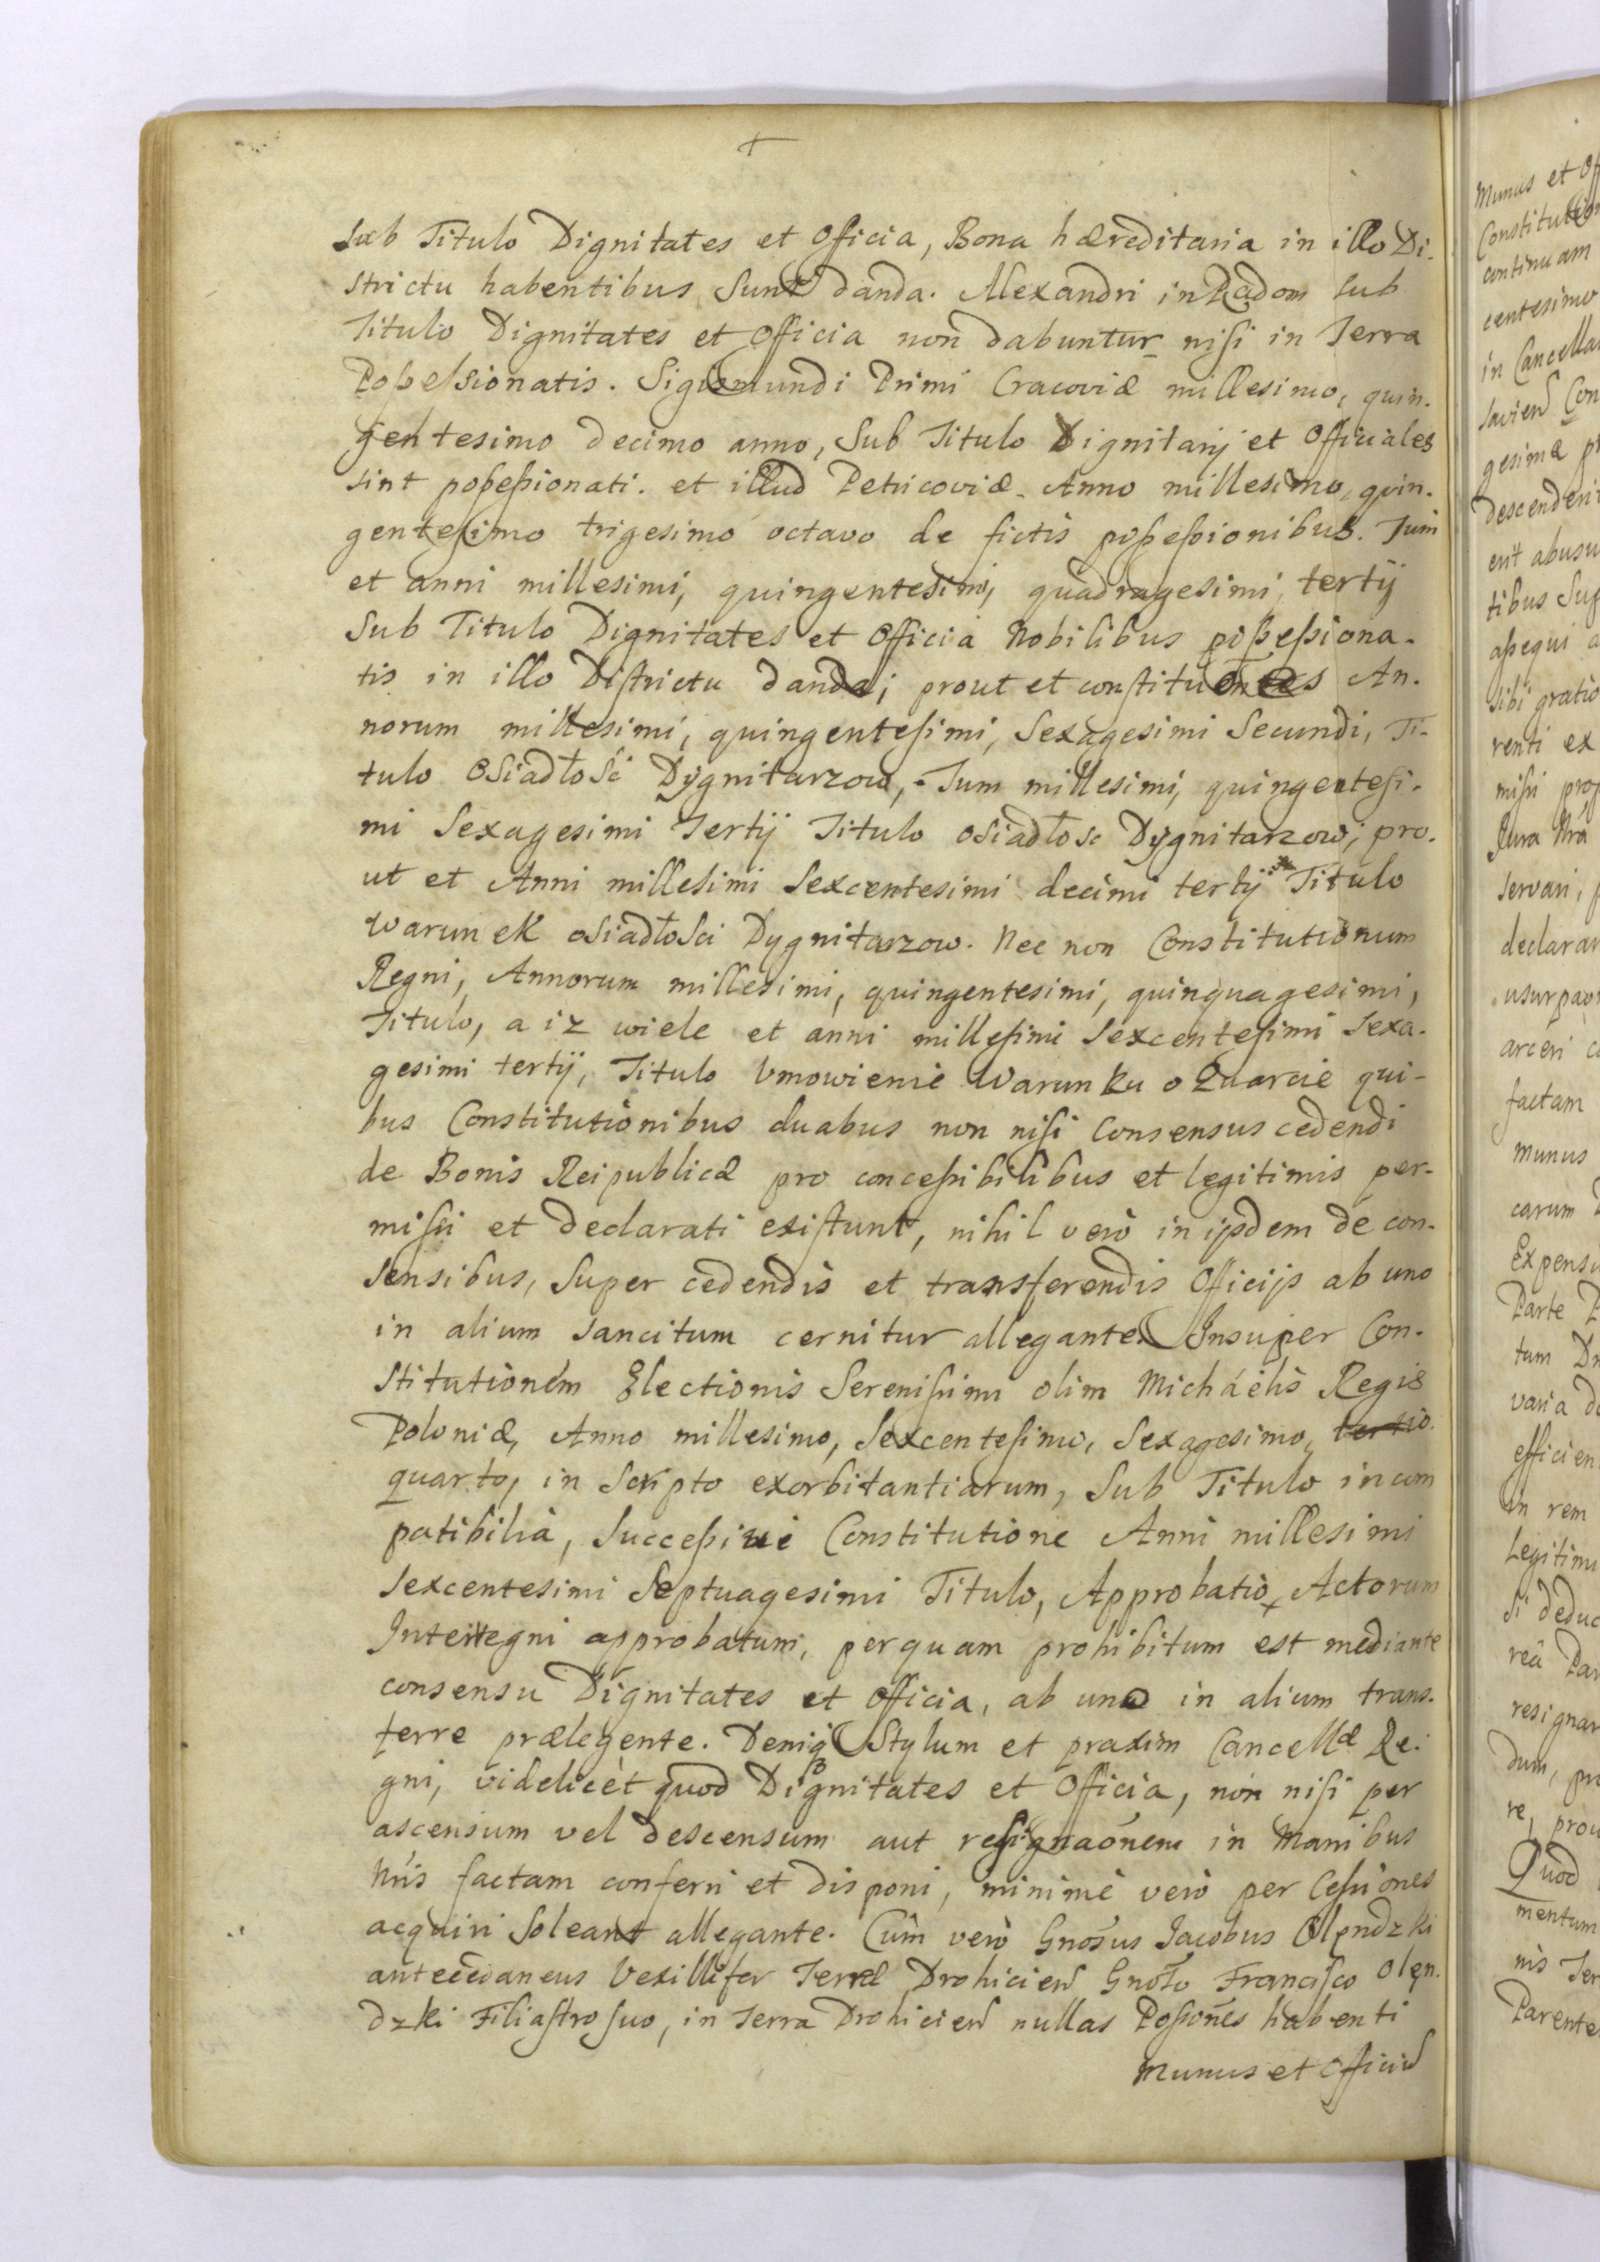 Sub Titulo Dignitates et Officia, Bona hæreditaria in illo Di-
strictu habentibus Sunt danda. Alexandri in Radom Sub
Titulo Dignitates et Officia non dabuntur nisi in Terra
Possessionatis. Sigismundi Primi Cracoviæ millesimo, quin-
gentesimo decimo anno, Sub Titulo Dignitarij et Officiales
sint possessionati. et illud Petricoviæ. Anno millesimo, quin-
gentesimo trigesimo octavo de fictis possessionibus. Tum
et anni millesimi, quingentesimi, quadragesimi, tertij
Sub Titulo Dignitates et Officia Nobilibus possessiona-
tis in illo Districtu danda; prout et constitu An-
norum millesimi, quingentesimi, Sexagesimi Secundi, Ti-
tulo Osiadłość Dygnitarzow, Tum millesimi, quingentesi-
mi Sexagesimi Tertij Titulo osiadłosc Dygnitarzow; pro-
ut et Anni millesimi Sexcentesimi decimi tertij Titulo
Warunek osiadłosci Dygnitarzow. Nec non Constitutionum
Regni, Annorum millesimi, quingentesimi, quinquagesimi,
Titulo, a iz wiele et anni millesimi Sexcentesimi Sexa-
gesimi tertij, Titulo Vmowienie Warunku o Kwarcie qui-
bus Constitutionibus duabus non nisi Consensus cedendi
de Bonis Reipublicæ pro concessibilibus et legitimis per-
missi et declarati existunt, nihil verò in ijsdem de con-
sensibus, Super cedendis et transferendis Officijs ab uno
in alium sancitum cernitur allegante. Insuper Con-
stitutionem Electionis Serenissimi olim Michaelis Regis
Poloniæ, Anno millesimo, Sexcentesimo, Sexagesimo, tertio
quarto, in Scripto exorbitantiarum, Sub Titulo incom
patibilia, Successivè Constitutione Anni millesimi
Sexcentesimi Septuagesimi Titulo, Approbatio Actorum
Interregni approbatum, per quam prohibitum est mediante
consensu Dignitates et Officia, ab uno in alium trans-
ferre prælegente. Deniqꝫ Stylum et praxim Cancellæ Re-
gni, videlicèt quod Dignitates et Officia, non nisi per
ascensum vel descensum aut resignaõnem in Manibus
Nris factam conferri et disponi, minimè verò per Cessiones
acquiri Soleant allegante. Cùm verò Gnosus Jacobus Olendzki
antecedaneus Vexillifer Terræ Drohicien Gnoso Francisco Olen-
dzki Filiastro suo, in Terra Drohicien nullas Possiones habenti
Munus et Officiu

Munus et Of
Constitution
continuam
centesimo
in Cancella
Con
gesimæ pr
descenderit
erit abusu
tibus Sup
assequi a
sibi gratio
renti ex
missi prop
Jura Nra
servari, p
declarar
usurpaon
arceri c
factam
munus
carum
Expensa
Parte P
tum Dn
varia d
efficien
in rem
Legitimu
Si deduc
reâ Par
resignar
dum, pr
re, prou
Quod
mentum
nis Ter
Parente